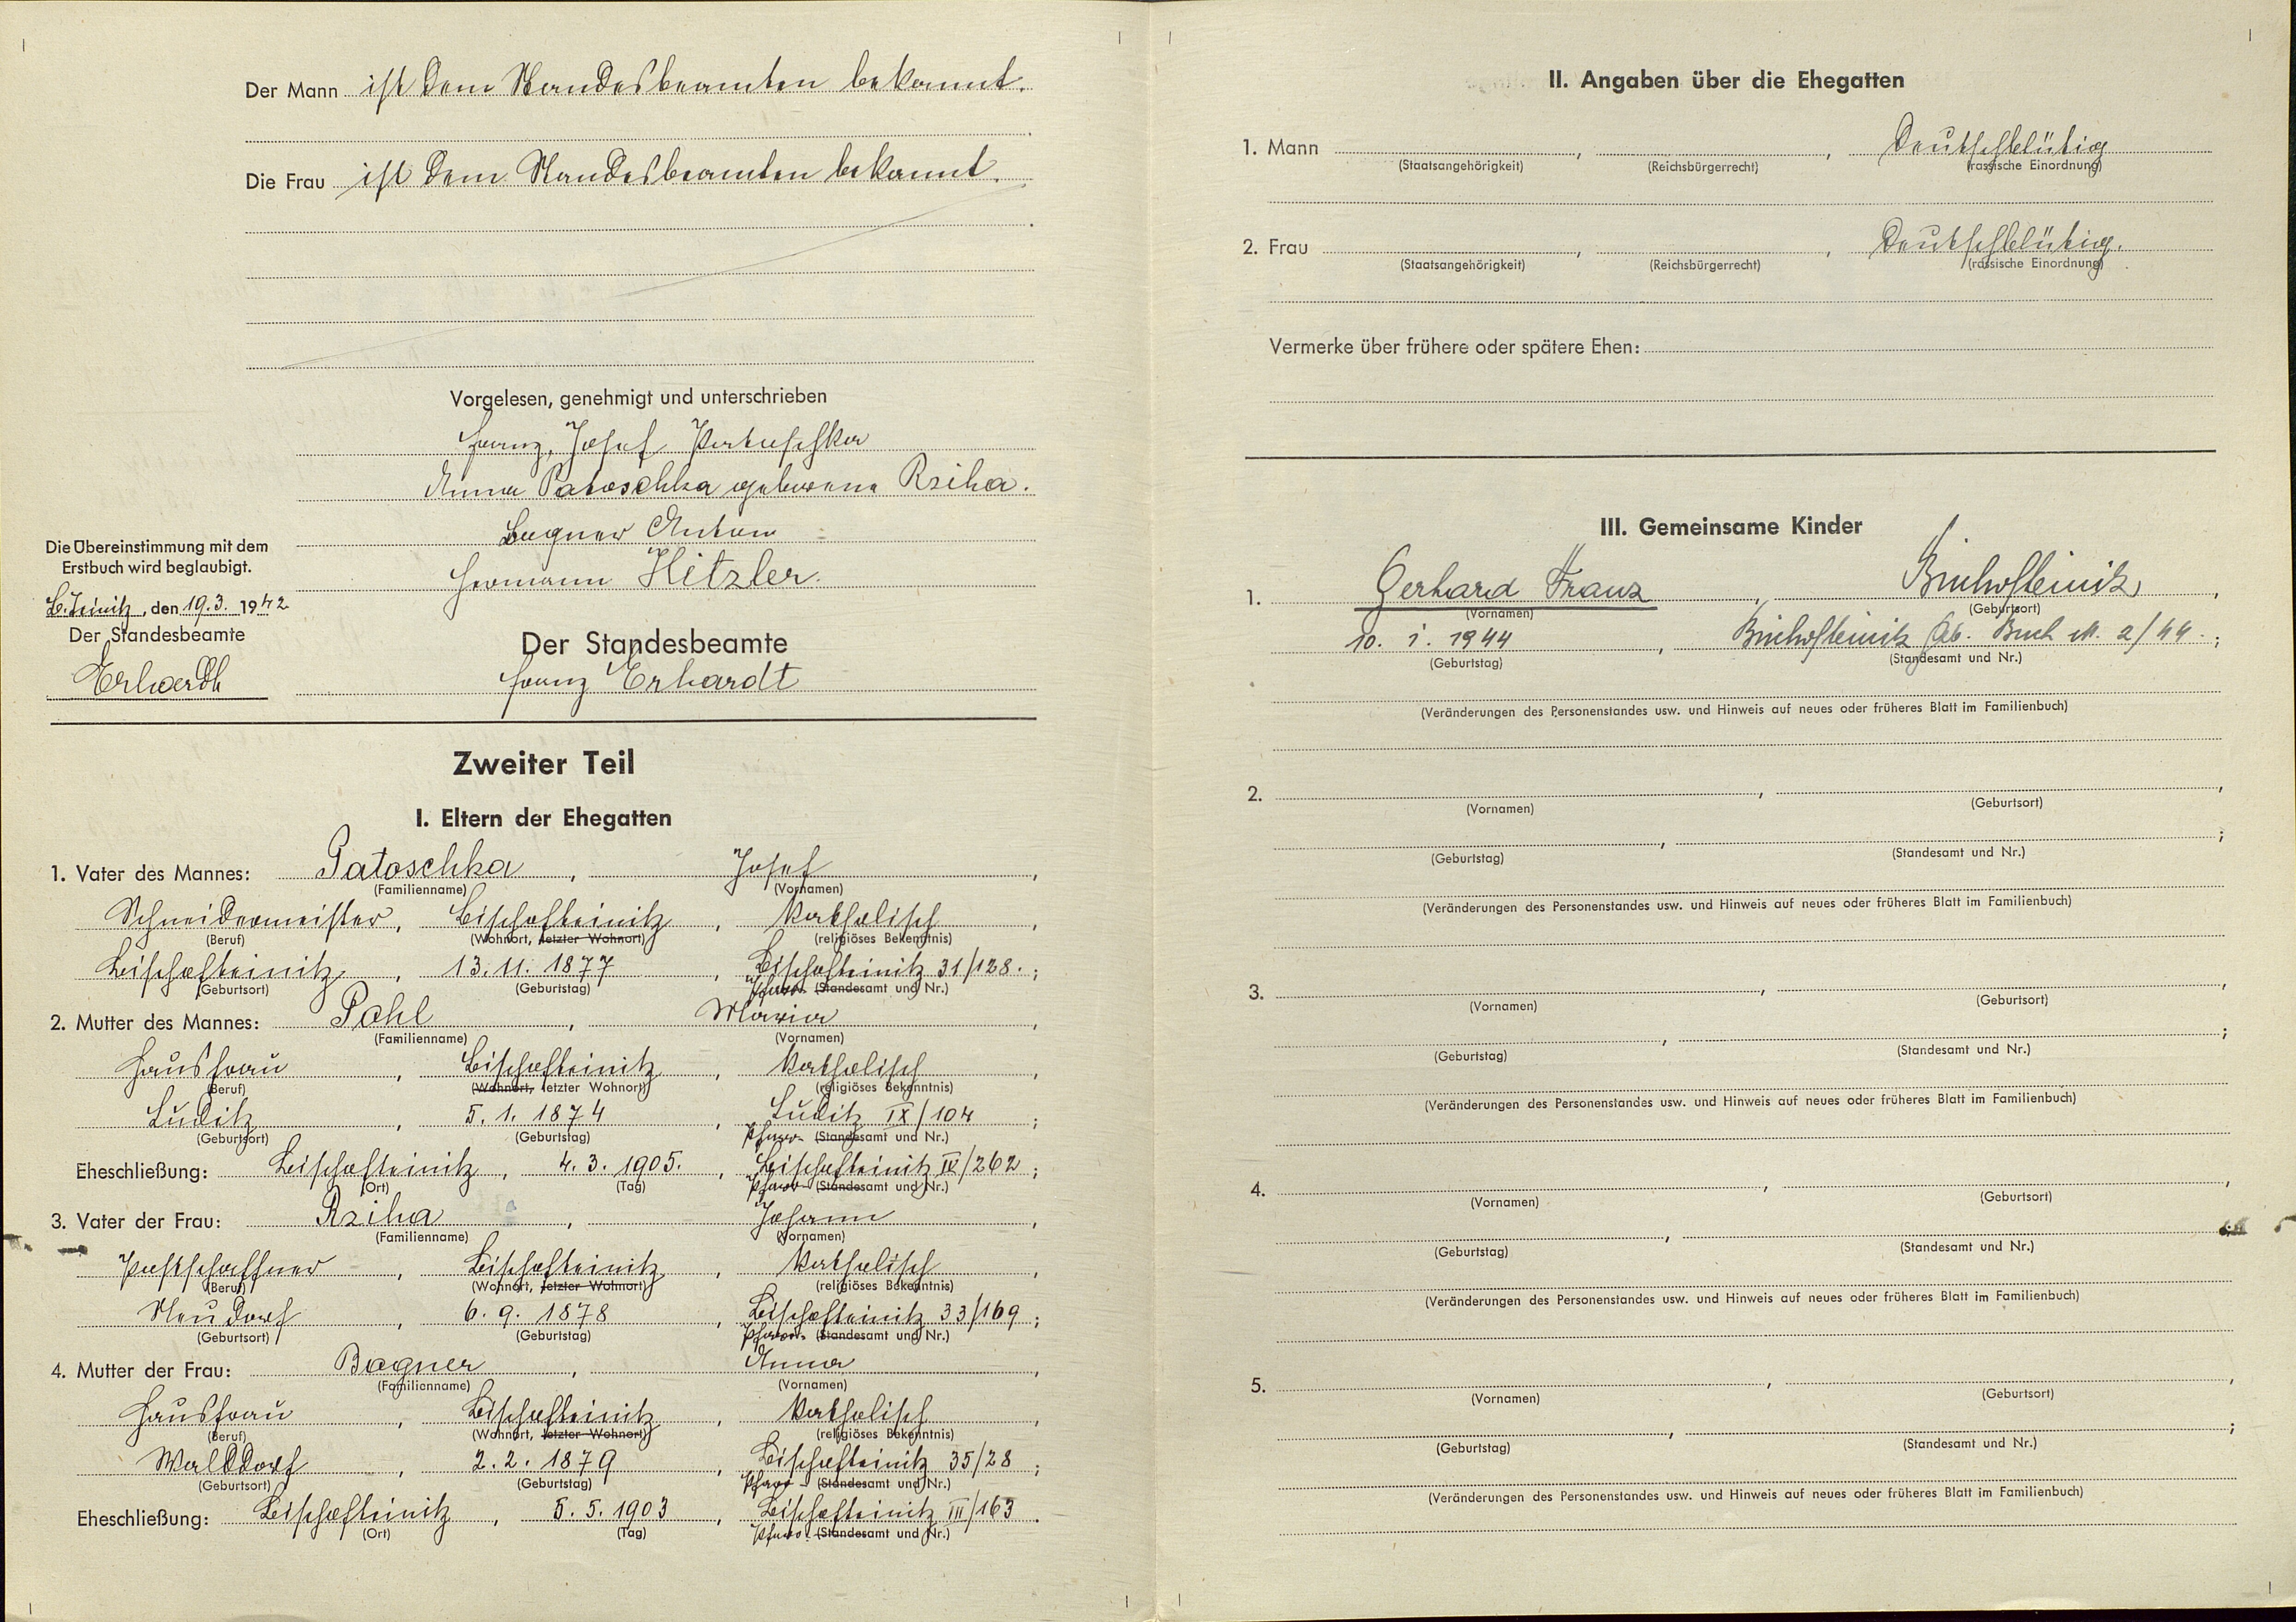 Der Mann ist dem Standesbeamten bekannt.
Die Frau ist dem Standesbeamten bekannt.
Vorgelesen, genehmigt und unterschrieben
Franz, Josef Patoschka
Anna Patoschka geborene Rziha.
Bagner Anton
Hermann Hitzler.
Die Übereinstimmung mit dem
Erstbuch wird beglaubigt.
B.Teinitz, den 19.3. 1942
Der Standesbeamte
Erhardt
Der Standesbeamte
Franz Erhardt
Zweiter Teil
I. Eltern der Ehegatten
1. Vater des Mannes: Patoschka, Josef,
(Familienname) (Vornamen)
Schneidermeister, Bischofteinitz, katholisch,
(Beruf) (Wohnort, letzter Wohnort) (religiöses Bekenntnis)
Bischofteinitz, 13.11.1877, Bischofteinitz 31/128.;
(Geburtsort) (Geburtstag) Pfarr- (Standesamt und Nr.)
2. Mutter des Mannes: Pohl, Maria,
(Familienname) (Vornamen)
Hausfrau, Bischofteinitz, katholisch,
(Beruf) (Wohnort, letzter Wohnort) (religiöses Bekenntnis)
Luditz, 5.1.1874, Luditz IX/104;
(Geburtsort) (Geburtstag) Pfarr- (Standesamt und Nr.)
Eheschließung: Bischofteinitz, 4.3.1905., Bischofteinitz IV/262;
(Ort) (Tag) Pfarr- (Standesamt und Nr.)
3. Vater der Frau: Rziha, Johann,
(Familienname) (Vornamen)
Postschaffner, Bischofteinitz, katholisch,
(Beruf) (Wohnort, letzter Wohnort) (religiöses Bekenntnis)
Neudorf, 6.9.1878, Bischofteinitz 33/169;
(Geburtsort) (Geburtstag) Pfarr- (Standesamt und Nr.)
4. Mutter der Frau: Bagner, Anna,
(Familienname) (Vornamen)
Hausfrau, Bischofteinitz, katholisch,
(Beruf) (Wohnort, letzter Wohnort) (religiöses Bekenntnis)
Walddorf, 2.2.1879, Bischofteinitz 35/28;
(Geburtsort) (Geburtstag) Pfarr- (Standesamt und Nr.)
Eheschließung: Bischofteinitz, 5.5.1903, Bischofteinitz III/163.
(Ort) (Tag) Pfarr- (Standesamt und Nr.)
II. Angaben über die Ehegatten
1. Mann , , Deutschblütig
(Staatsangehörigkeit) (Reichsbürgerrecht) (rassische Einordnung)
2. Frau , , Deutschblütig.
(Staatsangehörigkeit) (Reichsbürgerrecht) (rassische Einordnung)
Vermerke über frühere oder spätere Ehen:
III. Gemeinsame Kinder
1. Gerhard Franz, Bischofteinitz,
(Vornamen) (Geburtsort)
10. 1. 1944, Bischofteinitz Gb. Buch N. 2/44.;
(Geburtstag) (Standesamt und Nr.)
(Veränderungen des Personenstandes usw. und Hinweis auf neues oder früheres Blatt im Familienbuch)
2. , ,
(Vornamen) (Geburtsort)
, ;
(Geburtstag) (Standesamt und Nr.)
(Veränderungen des Personenstandes usw. und Hinweis auf neues oder früheres Blatt im Familienbuch)
3. , ,
(Vornamen) (Geburtsort)
, ;
(Geburtstag) (Standesamt und Nr.)
(Veränderungen des Personenstandes usw. und Hinweis auf neues oder früheres Blatt im Familienbuch)
4. , ,
(Vornamen) (Geburtsort)
(Geburtstag) (Standesamt und Nr.)
(Veränderungen des Personenstandes usw. und Hinweis auf neues oder früheres Blatt im Familienbuch)
5. , ,
(Vornamen) (Geburtsort)
, ;
(Geburtstag) (Standesamt und Nr.)
(Veränderungen des Personenstandes usw. und Hinweis auf neues oder früheres Blatt im Familienbuch)